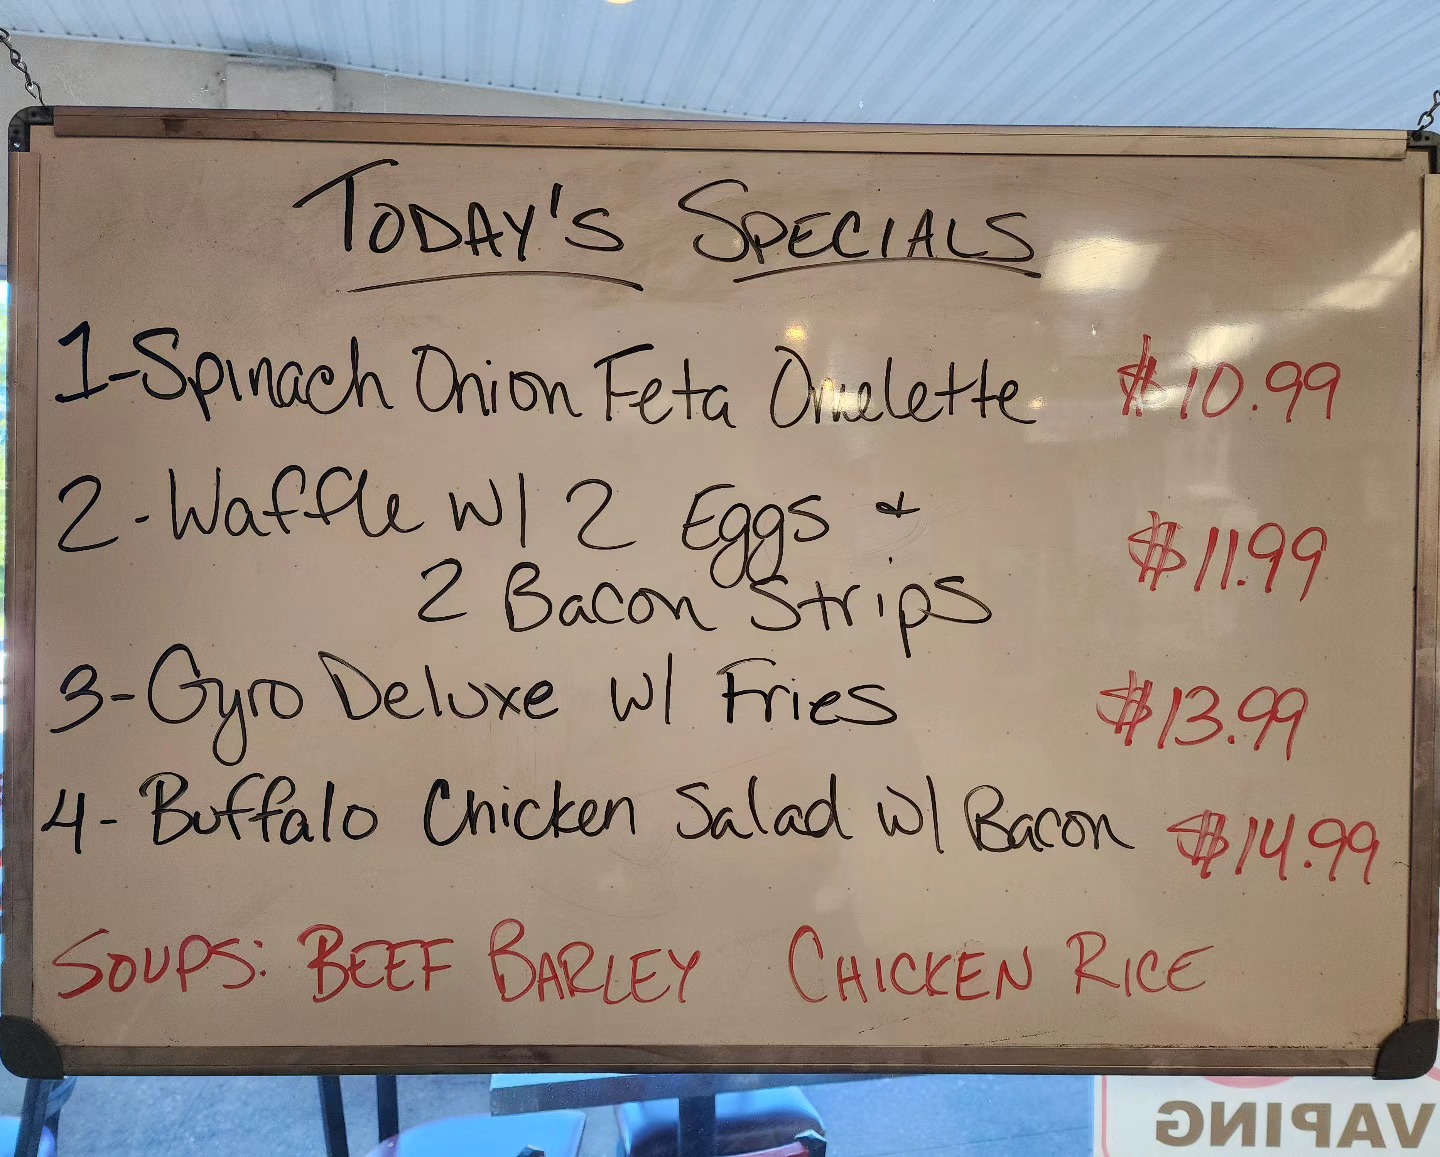 TODAY'S SPECIALS
1-Spinach Onion Feta Omelette $10.99
2-Waffle w/ 2 Eggs &
2 Bacon Strips $11.99
3-Gyro Deluxe w/ Fries $13.99
4-Buffalo Chicken Salad w/ Bacon $14.99
SOUPS: BEEF BARLEY CHICKEN RICE
VAPING